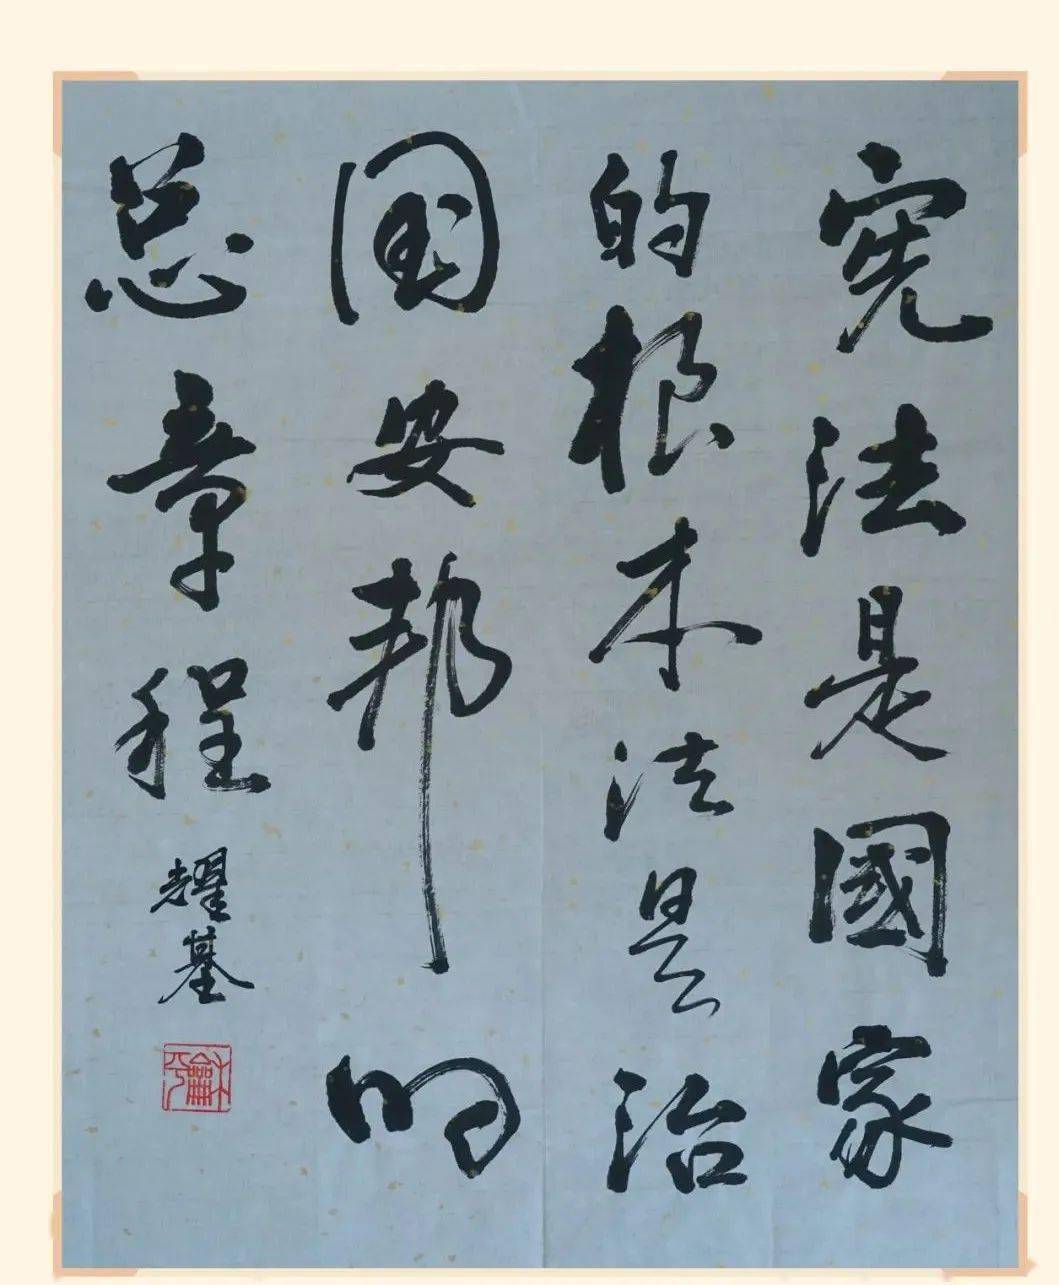 宪法是國家
的根本法是治
国安邦的
总章程
耀基